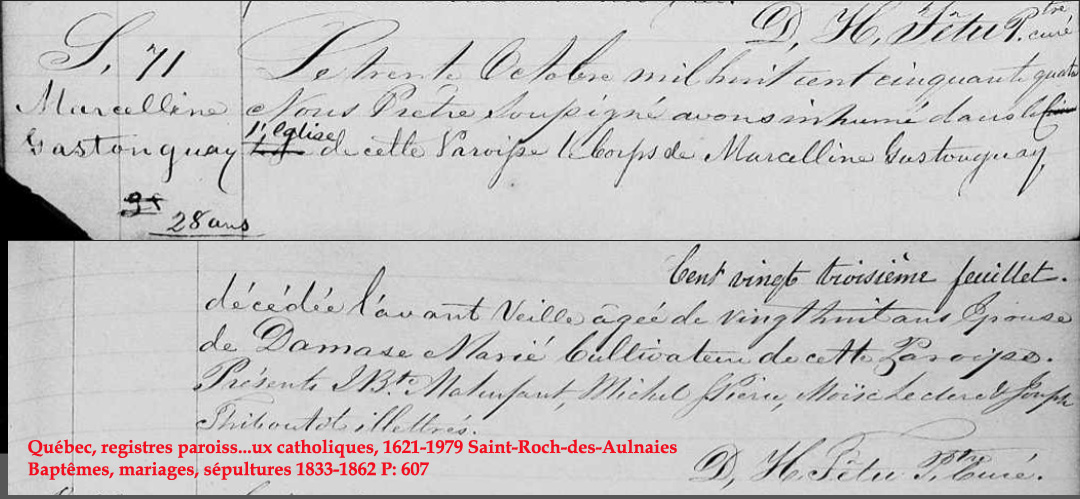 D, H, Têtu P.tre curé
S, n 71
Marcelline
Gastonguay
28 ans
Le trente Octobre mil huit cent cinquante quatre
Nous Prêtre Soussigné avons inhumé dans le
l'Eglise de cette Paroisse le Corps de Marcelline Gastonguay,
Cent vingt troisième feuillet.
décédée l'avant Veille agée de vingt huit ans Epouse
de Damase Marié Cultivateur de cette Paroisse.
Présents J. Bte. Malenfant, Michel Pierre, Moïse Leclerc & Joseph
Thiboutot illettrés.
D, H, Têtu Ptre Curé.
Québec, registres paroiss...ux catholiques, 1621-1979 Saint-Roch-des-Aulnaies
Baptêmes, mariages, sépultures 1833-1862 P: 607